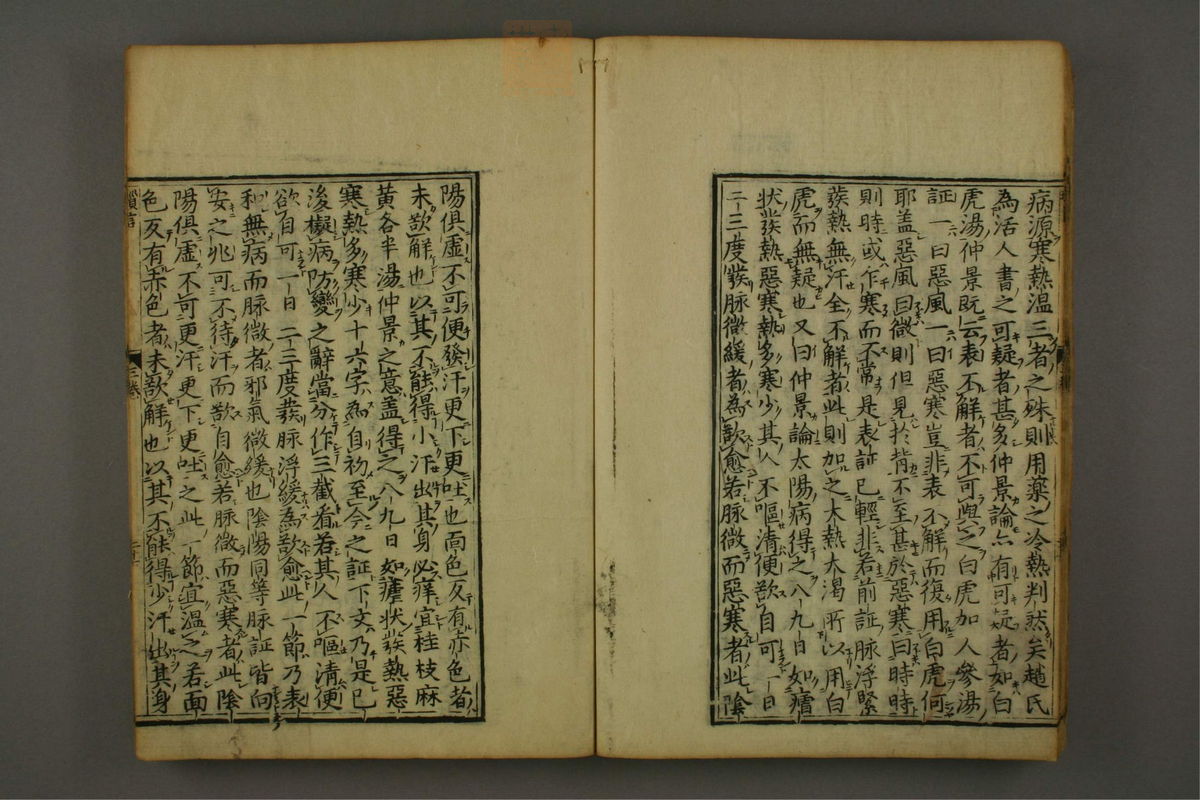 病源寒熱温三者之殊則用藥之冷熱判然矣趙氏
為活人書之可疑者甚多仲景論亦有可疑者如白
虎湯仲景既云表不解者不可與之白虎加人參湯
証一曰惡風一曰惡寒豈非表不解而復用白虎何
耶盖惡風曰微則但見於背不至甚於惡寒曰時時
則時或乍寒而不常是表証已輕非若前証脉浮緊
發熱無汗全不解者此則加之大熱大渇所以用白
虎而無疑也又曰仲景論太陽病得之八九日如瘧
状發熱惡寒熱多寒少其人不嘔清便欲自可一日
二三度發脉微緩者為欲愈若脉微而惡寒者此陰
陽俱虚不可便發汗更下更吐也面色反有赤色者
未欲解也以其不能得小汗出其身必痒宜桂枝麻
黄各半湯仲景之意盖得之八九日如瘧状發熱惡
寒熱多寒少十六字為自初至今之証下文乃是已
後擬病防變之辭當分作三截看若其人不嘔清便
欲自可一日二三度發脉浮緩為欲愈此一節乃表
和無病而脉微者邪氣微緩也陰陽同等脉証皆向
安之兆可不待汗而欲自愈若脉微而惡寒者此陰
陽俱虚不可更汗更下更吐之此一節宜温之若面
色反有赤色者未欲解也以其不能得少汗出其身